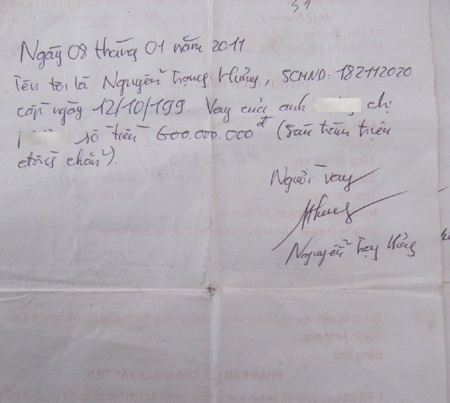 31
Ngày 08 tháng 01 năm 2011
Tên tôi là Nguyễn Trọng Hưởng, SCMND: 182112020
cấp ngày 12/10/199 Vay của anh chị
số tiền 600.000.000đ (Sáu trăm triệu
đồng chẵn).
Người vay
Nguyễn Trọng Hưởng
PHẦN CAM CỦA NGƯỜI VAY TIỀN